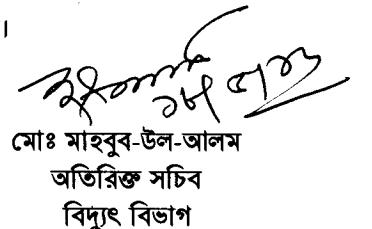 ।
মোঃ মাহবুব-উল-আলম
অতিরিক্ত সচিব
বিদ্যুৎ বিভাগ